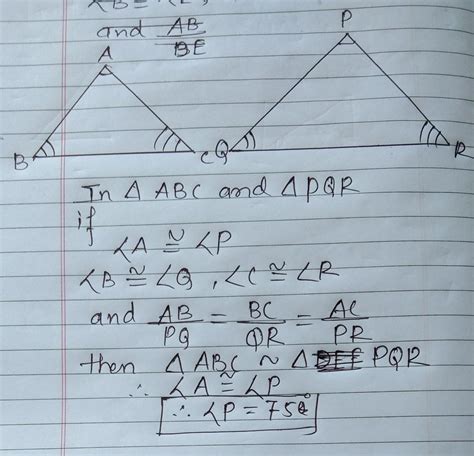 ∠B = ∠E,
and AB/BE
A
P
B
C
Q
R
In △ ABC and △PQR
if
∠A ≅ ∠P
∠B ≅ ∠Q , ∠C ≅ ∠R
and AB/PQ = BC/QR = AC/PR
then △ ABC ~ △ PQR
∴ ∠A ≅ ∠P
∴ ∠P = 75°